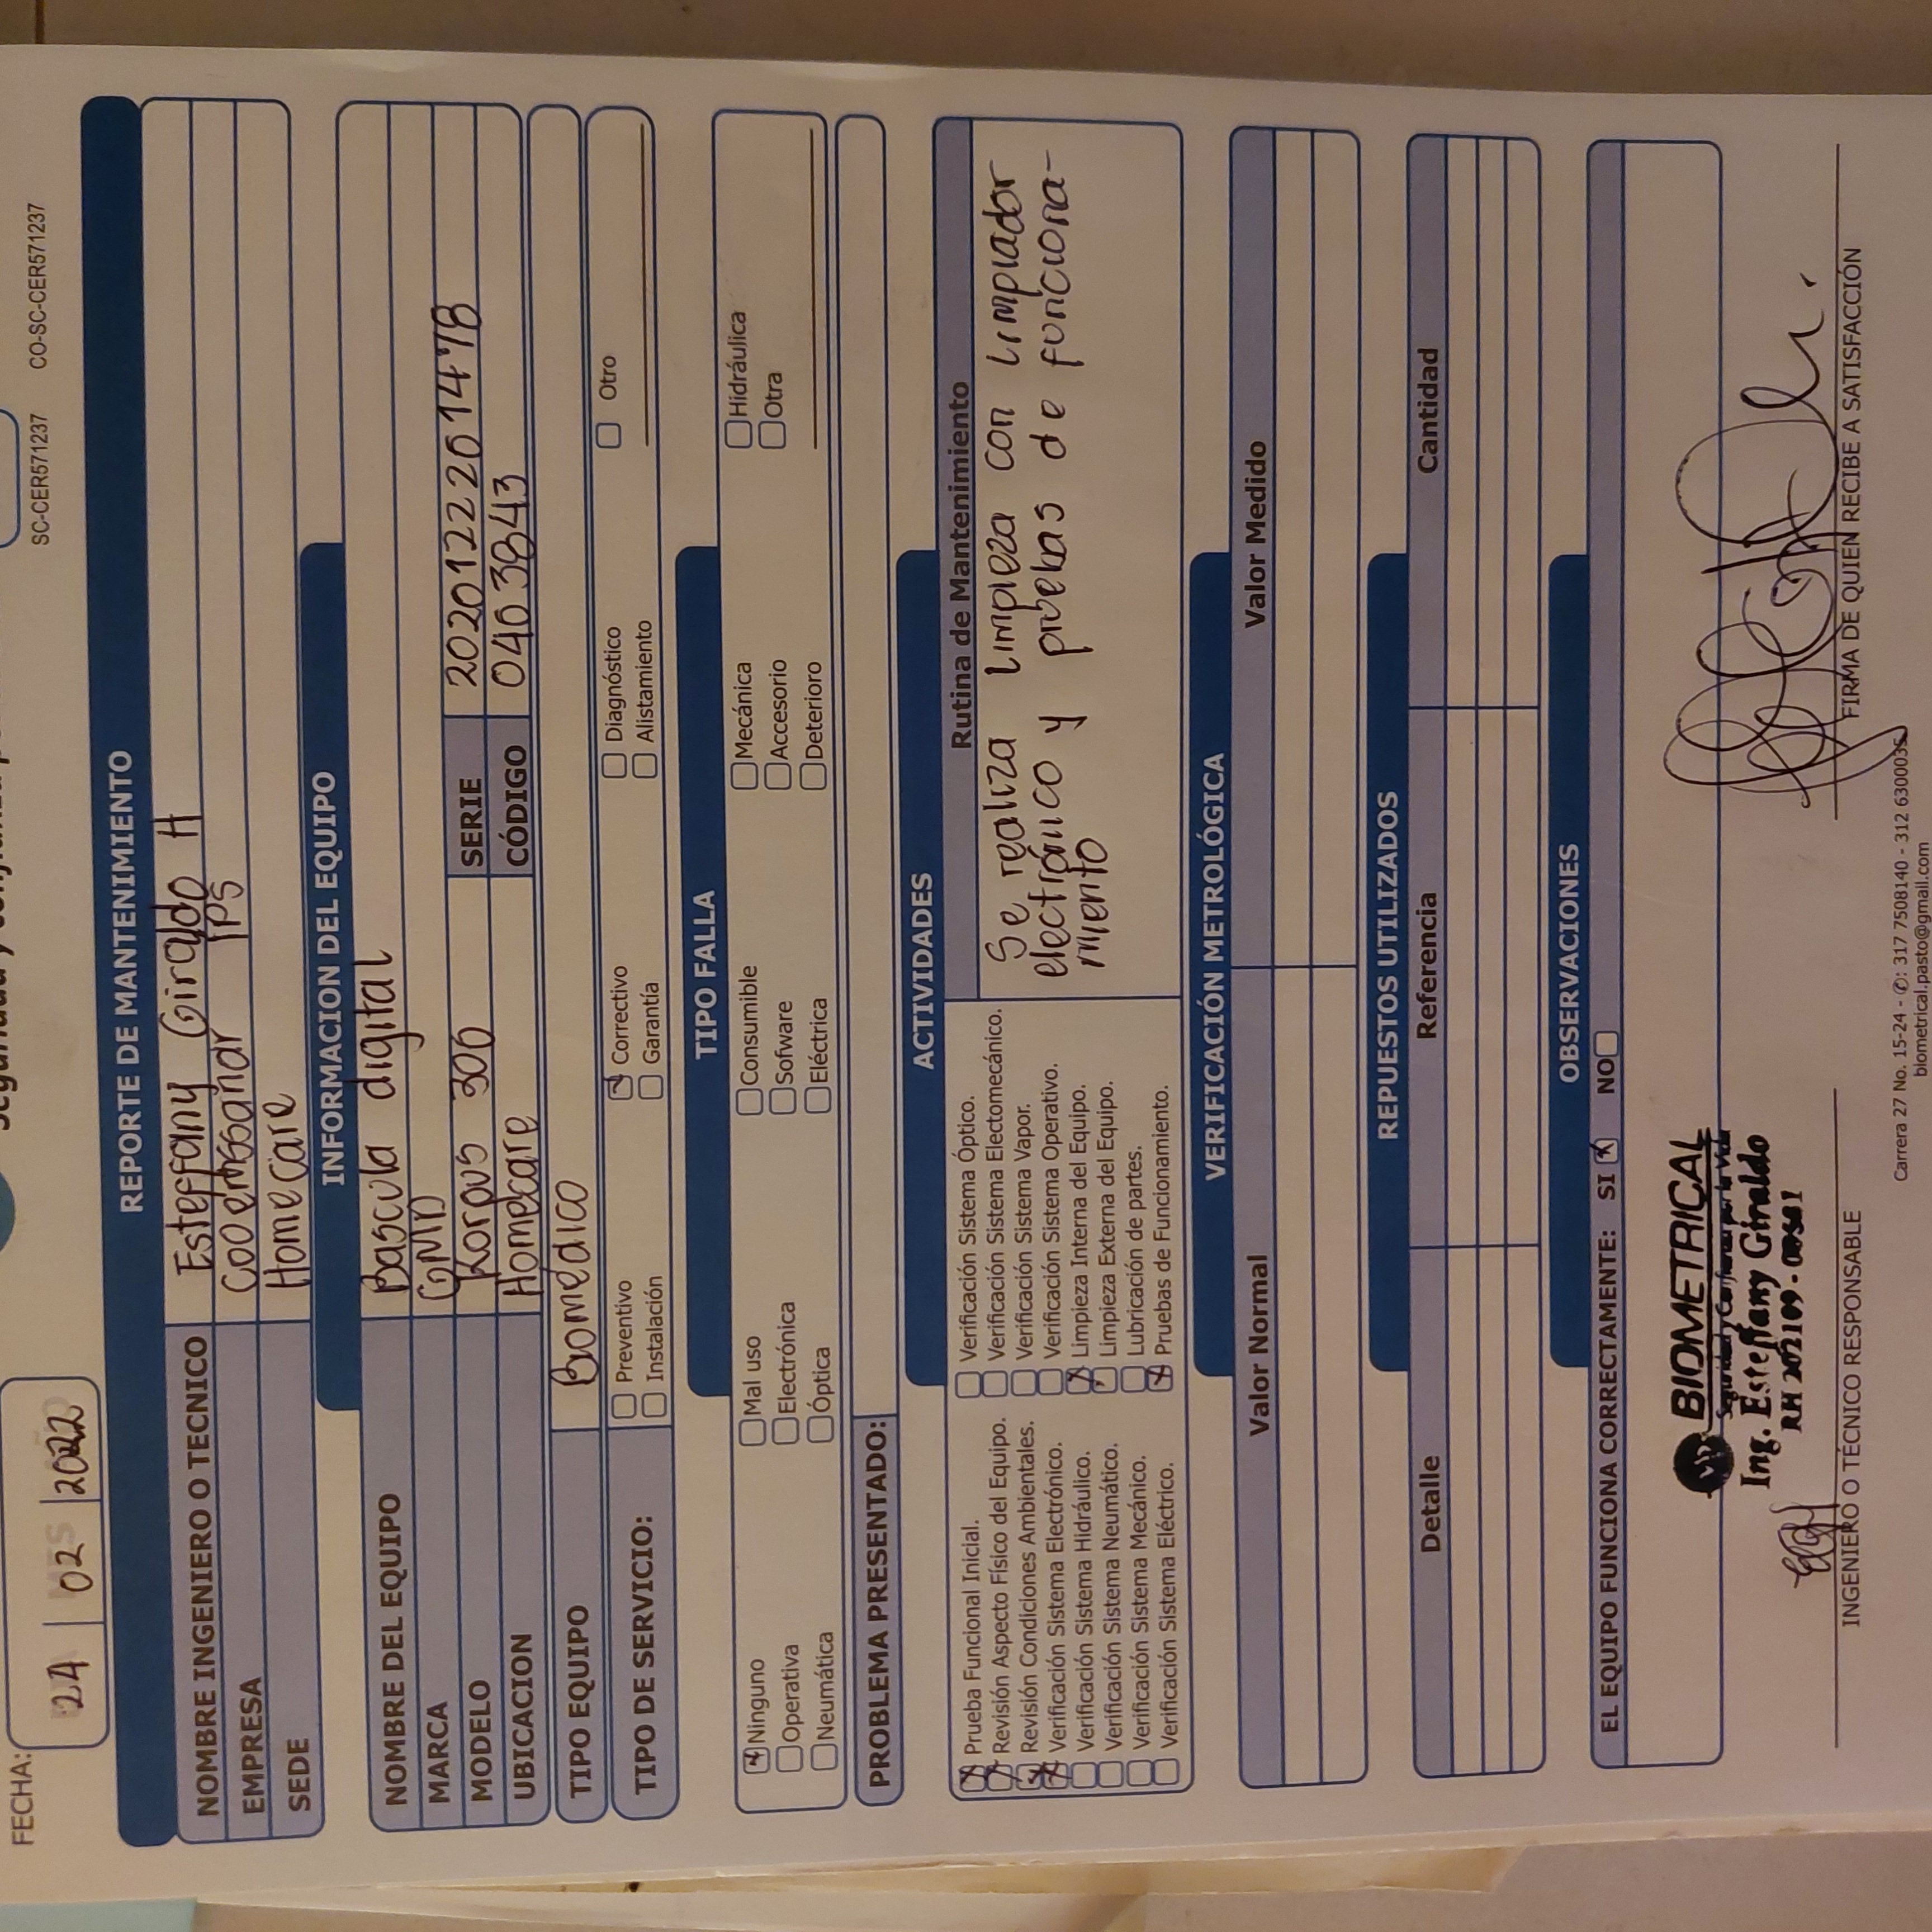 FECHA: 24 02 2022
SC-CER571237 CO-SC-CER571237
REPORTE DE MANTENIMIENTO
NOMBRE INGENIERO O TECNICO Esteffany Giraldo H
EMPRESA Cooemssanar IPS
SEDE Homecare
INFORMACION DEL EQUIPO
NOMBRE DEL EQUIPO Bascula digital
MARCA GMD
MODELO Korpus 300 SERIE 2020122201478
UBICACION Homecare CÓDIGO 0403843
TIPO EQUIPO Biomédico
TIPO DE SERVICIO: Preventivo Correctivo Diagnóstico Otro
Instalación Garantía Alistamiento
TIPO FALLA
Ninguno Mal uso Consumible Mecánica Hidráulica
Operativa Electrónica Sofware Accesorio Otra
Neumática Óptica Eléctrica Deterioro
PROBLEMA PRESENTADO:
ACTIVIDADES
Prueba Funcional Inicial.
Revisión Aspecto Físico del Equipo.
Revisión Condiciones Ambientales.
Verificación Sistema Electrónico.
Verificación Sistema Hidráulico.
Verificación Sistema Neumático.
Verificación Sistema Mecánico.
Verificación Sistema Eléctrico.
Verificación Sistema Óptico.
Verificación Sistema Electomecánico.
Verificación Sistema Vapor.
Verificación Sistema Operativo.
Limpieza Interna del Equipo.
Limpieza Externa del Equipo.
Lubricación de partes.
Pruebas de Funcionamiento.
Rutina de Mantenimiento
Se realiza limpieza con limpiador
electrónico y pruebas de funciona-
miento
VERIFICACIÓN METROLÓGICA
Valor Normal Valor Medido
REPUESTOS UTILIZADOS
Detalle Referencia Cantidad
OBSERVACIONES
EL EQUIPO FUNCIONA CORRECTAMENTE: SI NO
BIOMETRICAL
Seguridad y Confianza por la Vida
Ing. Esteffany Giraldo
RH 202109 -
EGH
INGENIERO O TÉCNICO RESPONSABLE FIRMA DE QUIEN RECIBE A SATISFACCIÓN
Carrera 27 No. 15-24 - ✆: 317 7508140 - 312 6300035
biometrical.pasto@gmail.com